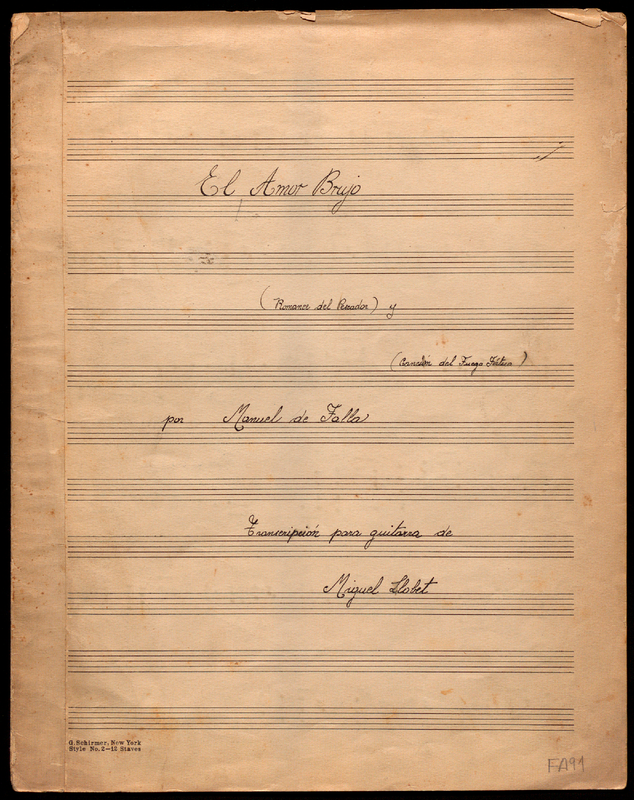 El Amor Brujo
(Romance del Pescador) y
(Canción del Fuego Fátuo)
por Manuel de Falla
Transcripción para guitarra de
Miguel Llobet
G. Schirmer, New York
Style No. 2—12 Staves
FA91